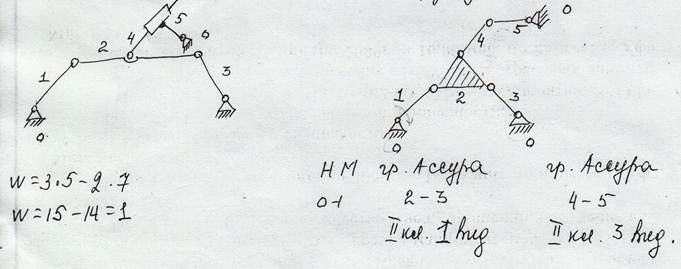 5
0
4
2
1
3
0
0
0
4
5
1
2
3
0
0
W = 3·5 - 2·7
W = 15 - 14 = 1
НМ гр. Ассура гр. Ассура
0-1 2-3 4-5
II кл. 1 вид II кл. 3 вид.